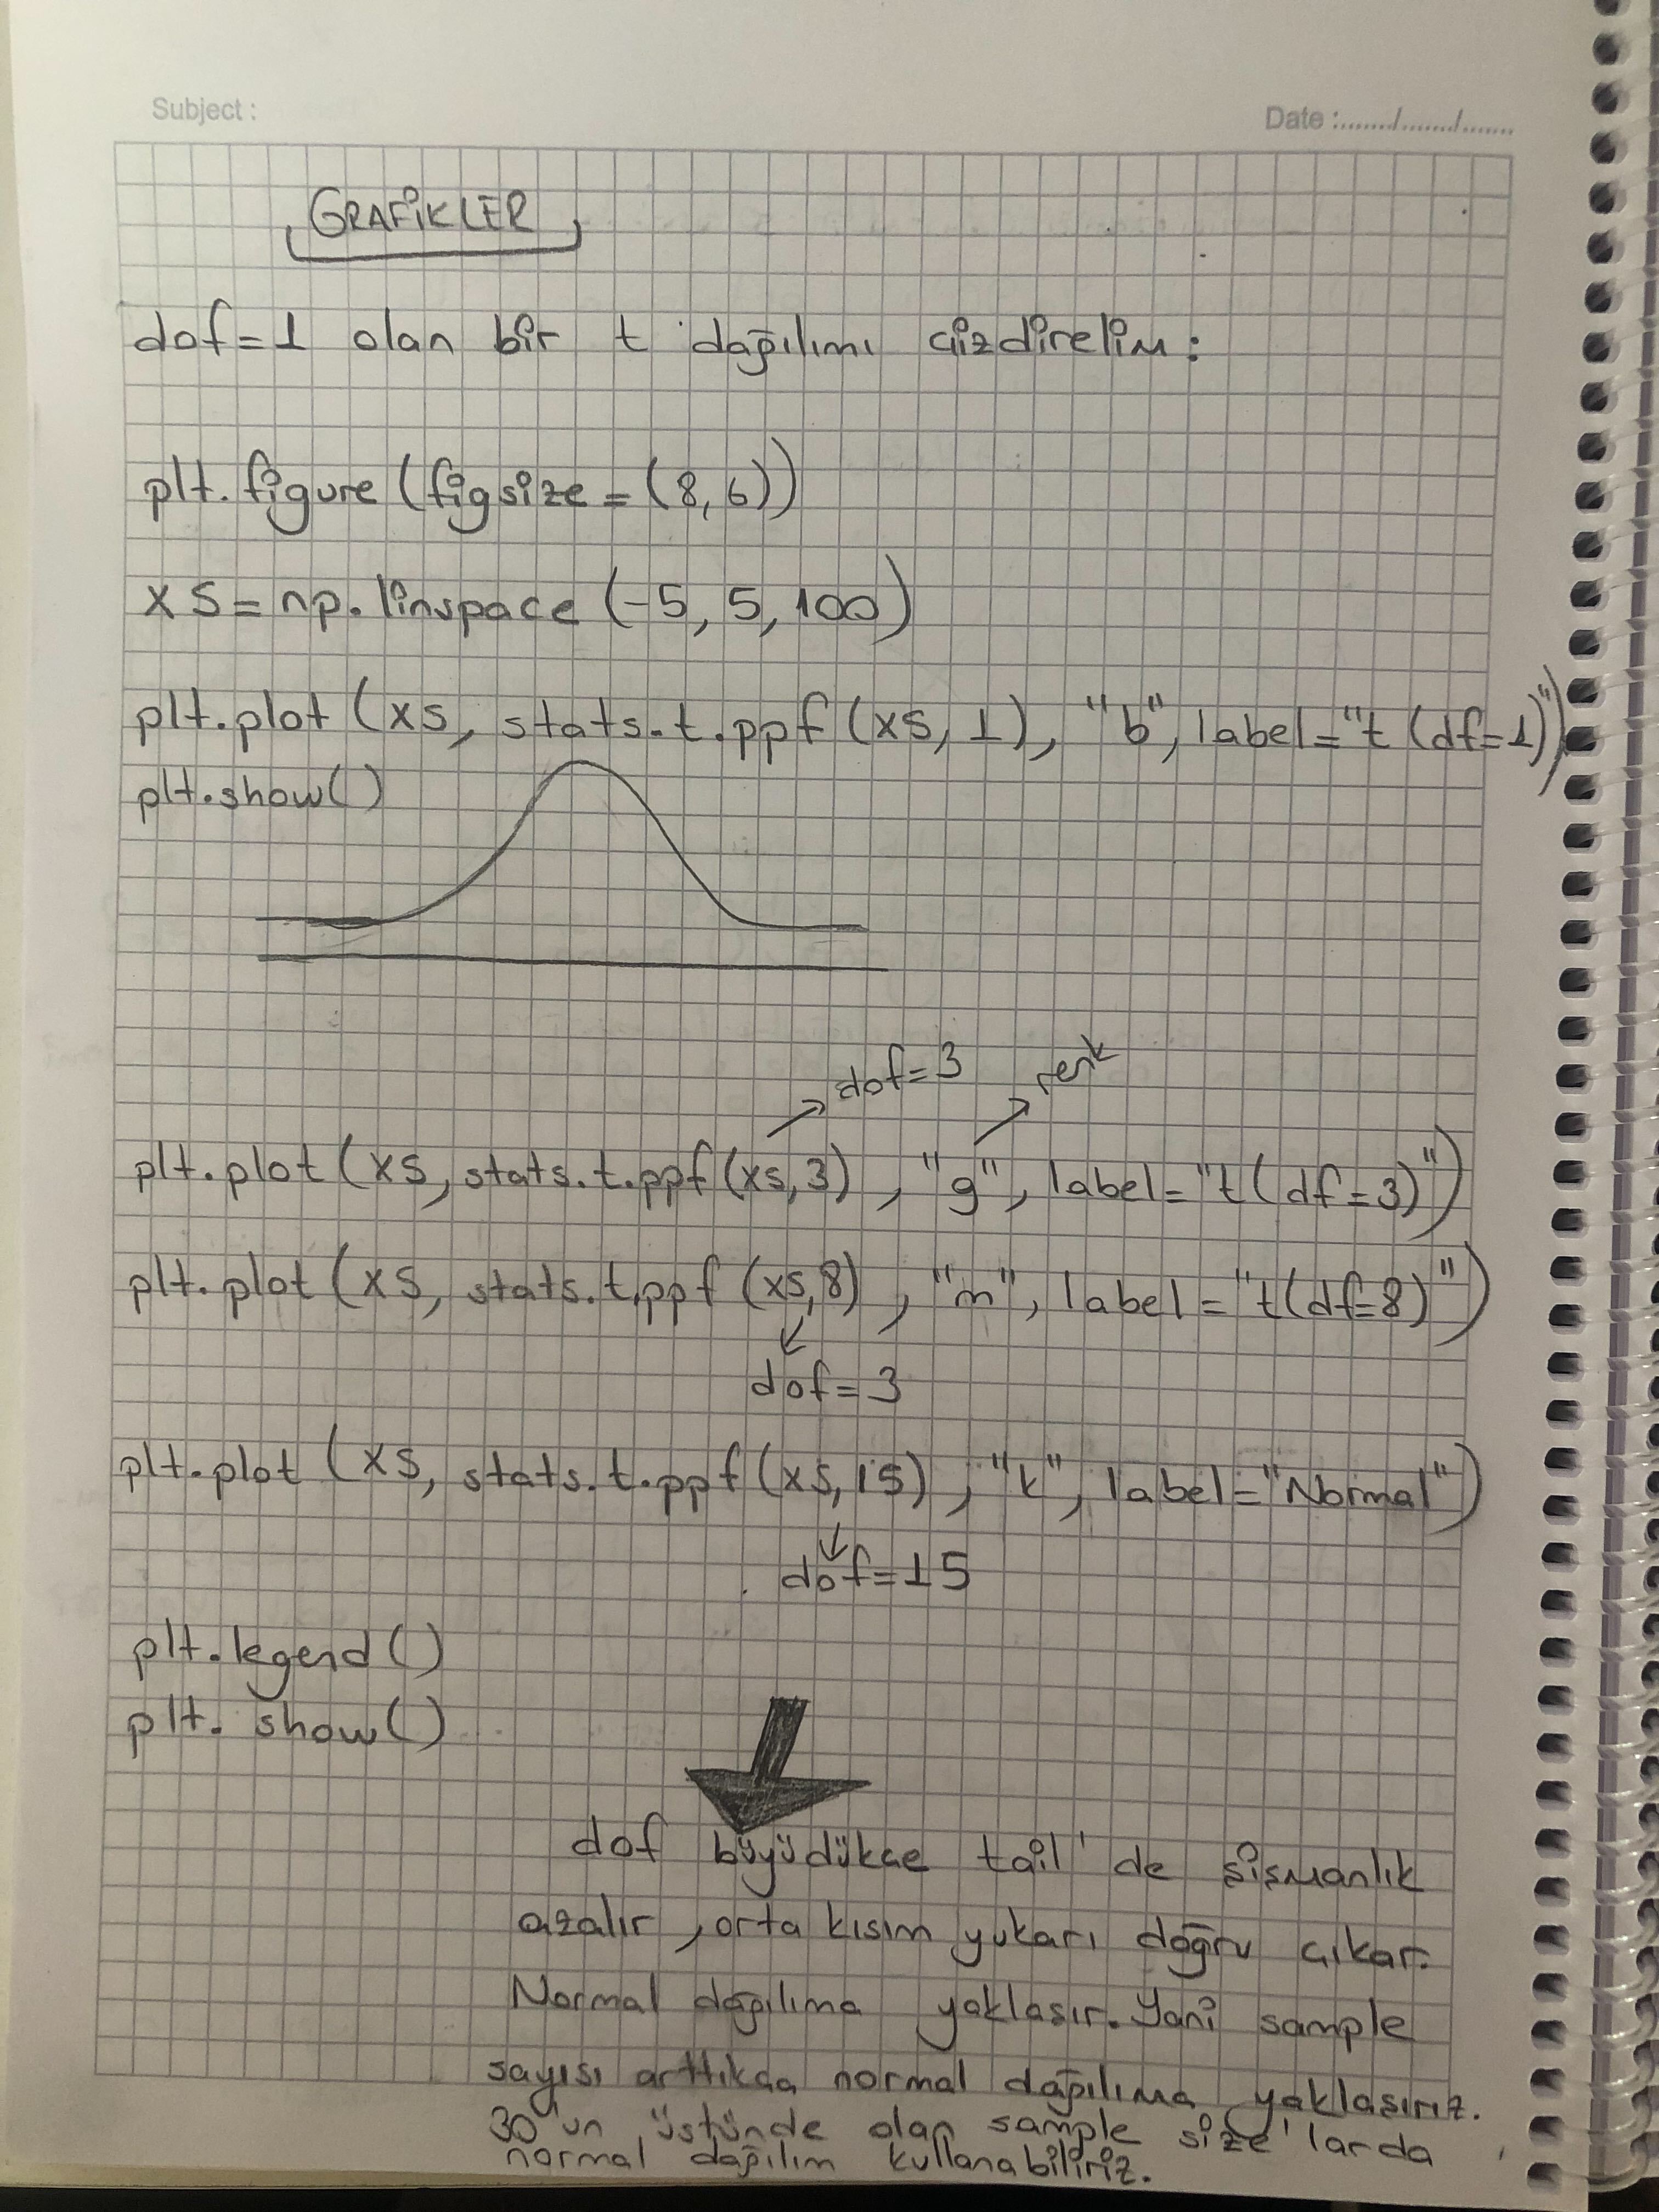 Subject :
Date :......./......./.......
GRAFİKLER
dof=1 olan bir t dağılımı çizdirelim:
plt.figure(figsize=(8,6))
xs=np.linspace(-5,5,100)
plt.plot(xs, stats.t.ppf(xs,1), "b", label="t(df=1)")
plt.show()
dof=3
renk
plt.plot(xs, stats.t.ppf(xs,3), "g", label="t(df=3)")
plt.plot(xs, stats.t.ppf(xs,8), "m", label="t(df=8)")
dof=3
plt.plot(xs, stats.t.ppf(xs,15), "k", label="Normal")
dof=15
plt.legend()
plt.show()
dof büyüdükçe tail'de şişmanlık
azalır, orta kısım yukarı doğru çıkar.
Normal dağılıma yaklaşır. Yani sample
sayısı arttıkça normal dağılıma yaklaşırız.
30'un üstünde olan sample size'larda
normal dağılım kullanabiliriz.